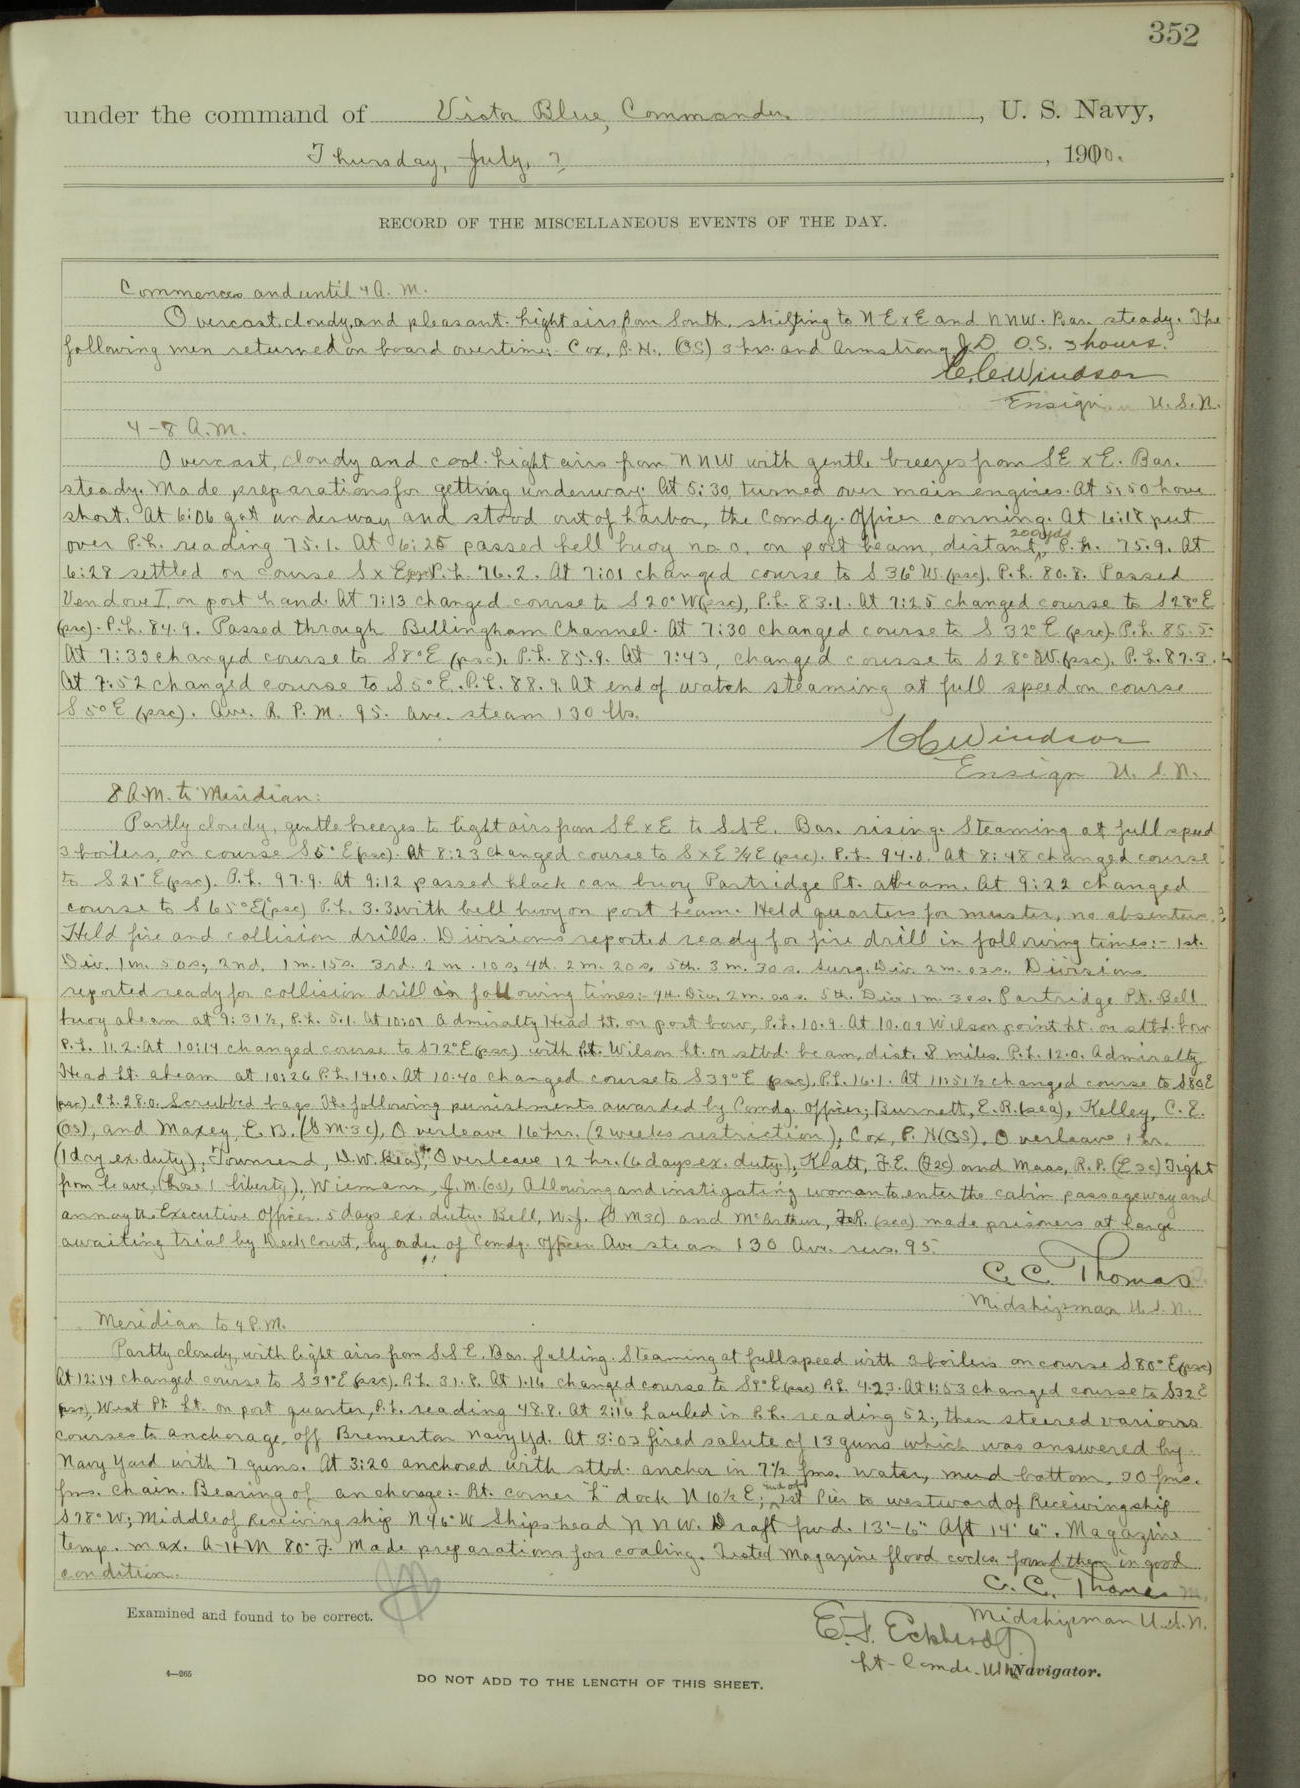 352
under the command of Victor Blue, Commander, U. S. Navy,
Thursday, July, 7, 1910.
RECORD OF THE MISCELLANEOUS EVENTS OF THE DAY.
Commences and until 4 A. M.
Overcast, cloudy, and pleasant. Light airs from South, shifting to NExE and NNW. Bar. steady. The
following men returned on board overtime: Cox, P. H., (OS) 3 hrs. and Armstrong J.D. O.S. 3 hours.
C.C. Windsor
Ensign U. S. N.
4-8 A.M.
Overcast, cloudy and cool. Light airs from NNW with gentle breezes from SE x E. Bar.
steady. Made preparations for getting underway. At 5:30, turned over main engines. At 5:50 hove
short. At 6:06 got underway and stood out of harbor, the Comdg. Officer conning. At 6:18 put
over P.L. reading 75.1. At 6:25 passed bell buoy no. 0, on port beam, distant 200 yds P.L. 75.9. At
6:28 settled on course S x E P.L. 76.2. At 7:01 changed course to S 36° W. (psc). P.L. 80.8. Passed
Vendove I. on port hand. At 7:13 changed course to S 20° W (psc), P.L. 83.1. At 7:25 changed course to S 28° E
(psc). P.L. 84.9. Passed through Bellingham Channel. At 7:30 changed course to S 32° E (psc). P.L. 85.5.
At 7:33 changed course to S 8° E (psc). P.L. 85.9. At 7:43, changed course to S 28° W. (psc). P.L. 87.3.
At 7:52 changed course to S 5° E. P.L. 88.9. At end of watch steaming at full speed on course
S 5° E (psc). Ave. R. P. M. 95. Ave. steam 130 lbs.
C C Windsor
Ensign U. S. N.
8 A.M. to Meridian:
Partly cloudy, gentle breezes to light airs from SE x E to SSE. Bar. rising. Steaming at full speed
3 boilers, on course S 5° E (psc). At 8:23 changed course to S x E 3/4 E (psc). P.L. 94.0. At 8:48 changed course
to S 21° E (psc). P.L. 97.9. At 9:12 passed black can buoy Partridge Pt. abeam. At 9:22 changed
course to S 65° E (psc) P.L. 3.3, with bell buoy on port beam. Held quarters for muster, no absentees.
Held fire and collision drills. Divisions reported ready for fire drill in following times:- 1st.
Div. 1 m. 50 s; 2nd. 1 m. 15 s. 3rd. 2 m. 10 s, 4th. 2 m. 20 s, 5th. 3 m. 30 s. Surg. Div. 2 m. 03 s. Divisions
reported ready for collision drill in following times: 4th. Div. 2 m. 5th. Div 1 m 30 s. Partridge Pt. Bell
buoy abeam at 9:31½, P.L. 5.1. At 10:07 Admiralty Head Lt. on port bow, P.L. 10.9. At 10:09 Wilson point Lt. on stbd. bow
P.L. 11.2. At 10:14 changed course to S 72° E (psc) with Pt. Wilson Lt. on stbd. beam, dist. .8 miles. P.L. 12.0. Admiralty
Head Lt. abeam at 10:26 P.L. 14.0. At 10:40 changed course to S 39° E (psc), P.L. 16.1. At 11:51½ changed course to S 80 E
(psc). P.L. 28.0. Scrubbed bags. The following punishments awarded by Comdg. Officer; Burnett, E. R. (sea), Kelley, C. E.
(OS), and Maxey, E. B. (SM3c), Overleave 16 hrs. (2 weeks restriction), Cox, P. H (OS). Overleave 1 hr.
(1 day ex. duty), Townsend, D. W. (sea), Overleave 12 hr. (6 days ex. duty.), Klatt, F. E. (F2c) and Maas, R. P. (E3c) Tight
from leave, (lose 1 liberty), Wiemann, J. M. (OS), Allowing and instigating woman to enter the cabin passageway and
annoy the Executive Officer. 5 days ex. duty. Bell, W. J. (GM3c) and McArthur, F. R. (sea) made prisoners at large
awaiting trial by Deck Court, by order of Comdg. Officer. Ave steam 130 Ave. revs. 95.
C. C. Thomas
Midshipman U. S. N.
Meridian to 4 P. M.
Partly cloudy, with light airs from S.S.E. Bar. falling. Steaming at full speed with 3 boilers on course S 80° E (psc)
At 12:14 changed course to S 39° E (psc). P.L. 31.8. At 1:16 changed course to S 9° E (psc) P.L. 42.3. At 1:53 changed course to S 32 E
(psc), West Pt. Lt. on port quarter, P.L. reading 48.8. At 2:16 hauled in P.L. reading 52., then steered various
courses to anchorage, off Bremerton Navy Yd. At 3:03 fired salute of 13 guns which was answered by
Navy Yard with 7 guns. At 3:20 anchored with stbd. anchor in 7½ fms. water, mud bottom, 30 fms.
fms. chain. Bearing of anchorage:- Rt. corner "L" dock N 10½ E; end of 1st Pier to westward of Receiving ship
S 78° W; Middle of Receiving ship N 46° W Ships head NNW. Draft fwd. 13'-6" Aft 14' 6". Magazine
temp. max. A-14-M 80° F. Made preparations for coaling. Tested Magazine flood cocks found them in good
condition.
C. C. Thomas
Midshipman U. S. N.
Examined and found to be correct.
Lt-Comdr. U.S.N. Navigator.
4—265
DO NOT ADD TO THE LENGTH OF THIS SHEET.